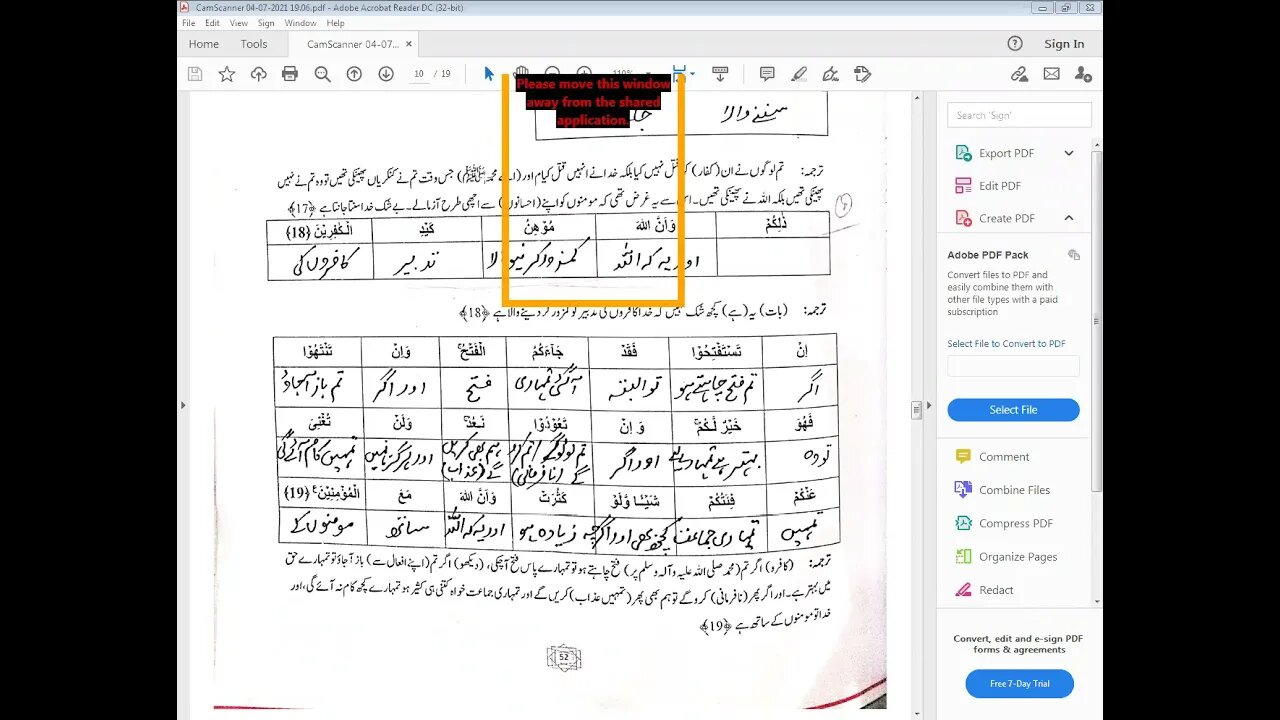 CamScanner 04-07-2021 19.06.pdf - Adobe Acrobat Reader DC (32-bit)
File Edit View Sign Window Help
Home Tools CamScanner 04-07... × Sign In
10 / 19
Please move this window
away from the shared
application.
سننے والا
ترجمہ: تم لوگوں نے ان (کفار) کو قتل نہیں کیا بلکہ خدا نے انہیں قتل کیا۔ اور (اے محمد ﷺ) جس وقت تم نے کنکریاں پھینکی تھیں تو وہ تم نے نہیں
پھینکی تھیں بلکہ اللہ نے پھینکی تھیں۔ اس سے یہ غرض تھی کہ مومنوں کو اپنے (احسانوں) سے اچھی طرح آزمالے۔ بے شک خدا سنتا جانتا ہے ﴿17﴾
ذٰلِكُمْ وَاَنَّ اللهَ مُوْهِنُ كَيْدِ الْكٰفِرِيْنَ ﴿18﴾
اور یہ کہ اللہ کمزور کرنیوالا تدبیر کافروں کی
ترجمہ: (بات) یہ (ہے) کچھ شک نہیں کہ خدا کافروں کی تدبیر کو کمزور کر دینے والا ہے ﴿18﴾
اِنْ تَسْتَفْتِحُوْا فَقَدْ جَآءَكُمُ الْفَتْحُ وَاِنْ تَنْتَهُوْا
اگر تم فتح چاہتے ہو تو البتہ آ گئی تمہاری فتح اور اگر تم باز آجاؤ
فَهُوَ خَيْرٌ لَّكُمْ وَ اِنْ تَعُوْدُوْا نَعُدْ وَلَنْ تُغْنِىَ
تو وہ بہتر ہے تمہارے لیے اور اگر ہم بھی کریں گے (عذاب) اور ہرگز نہیں تمہیں کام آئے گی
عَنْكُمْ فِئَتُكُمْ شَيْـئًا وَّلَوْ كَثُرَتْ وَاَنَّ اللهَ مَعَ الْمُؤْمِنِيْنَ ﴿19﴾
تمہیں تمہاری جماعت کچھ بھی اور اگرچہ زیادہ ہو اور یہ کہ اللہ ساتھ مومنوں کے
ترجمہ: (کافرو) اگر تم (محمد صلی اللہ علیہ وآلہ وسلم پر) فتح چاہتے ہو تو تمہارے پاس فتح آچکی، (دیکھو) اگر تم (اپنے افعال سے) باز آجاؤ تو تمہارے حق
میں بہتر ہے۔ اور اگر پھر (نافرمانی) کرو گے تو ہم بھی پھر (تمہیں عذاب) کریں گے اور تمہاری جماعت خواہ کتنی ہی کثیر ہو تمہارے کچھ کام نہ آئے گی، اور
خدا تو مومنوں کے ساتھ ہے ﴿19﴾
52
Search 'Sign'
Export PDF
Edit PDF
Create PDF
Adobe PDF Pack
Convert files to PDF and
easily combine them with
other file types with a paid
subscription
Select File to Convert to PDF
Select File
Comment
Combine Files
Compress PDF
Organize Pages
Redact
Convert, edit and e-sign PDF
forms & agreements
Free 7-Day Trial